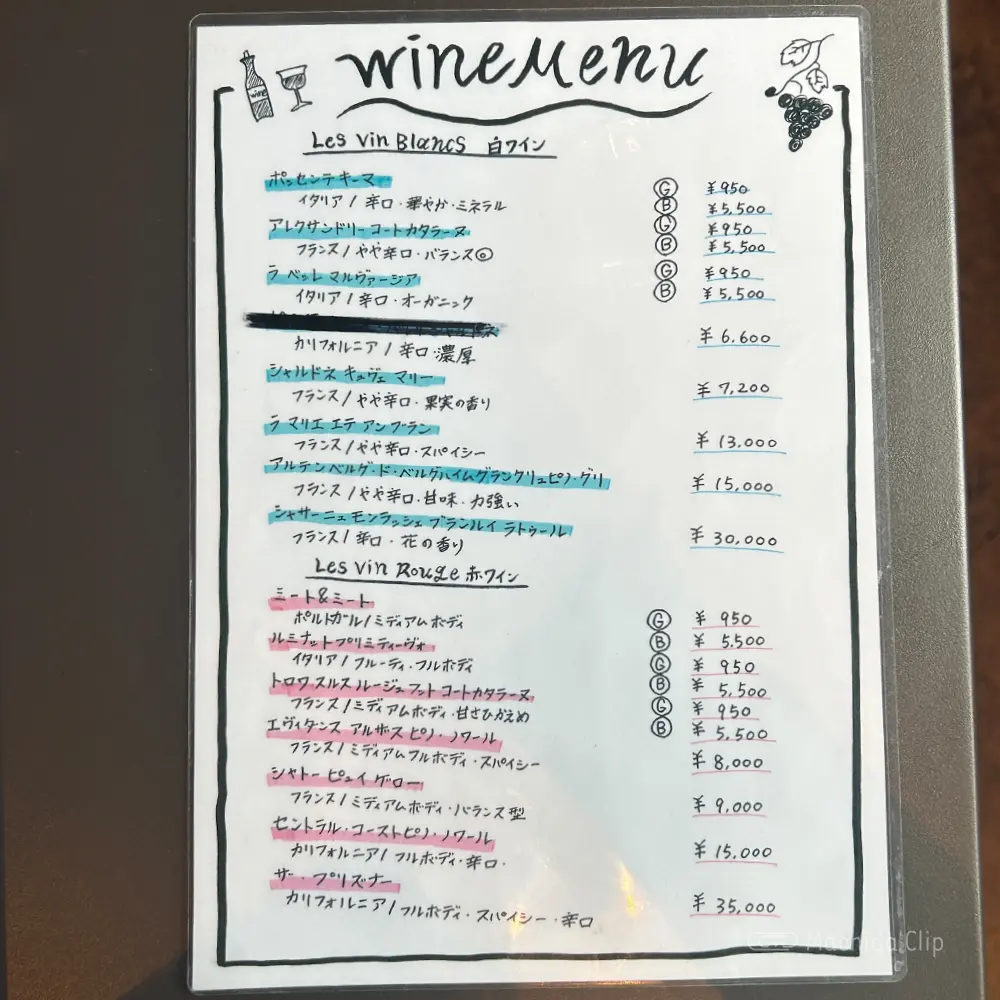 wine Menu
wine
Les Vin Blancs 白ワイン
ポッセンテ キーマ Ⓖ ¥950
イタリア / 辛口・華やか・ミネラル Ⓑ ¥5,500
アレクサンドリー コートカタラーヌ Ⓖ ¥950
フランス / やや辛口・バランス◎ Ⓑ ¥5,500
ラ ベット マルヴァージア Ⓖ ¥950
イタリア / 辛口・オーガニック Ⓑ ¥5,500
カリフォルニア / 辛口・濃厚 ¥6,600
シャルドネ キュヴェ マリー ¥7,200
フランス / やや辛口・果実の香り
ラ マリエ エテ アン ブラン ¥13,000
フランス / やや辛口・スパイシー
アルテンベルグ・ド・ベルグハイムグランクリュピノ・グリ ¥15,000
フランス / やや辛口・甘味・力強い
シャサーニュ モンラッシェ ブランルイ ラトゥール ¥30,000
フランス / 辛口・花の香り
Les Vin Rouge 赤ワイン
ミート&ミート Ⓖ ¥950
ポルトガル / ミディアムボディ Ⓑ ¥5,500
ルミナットプリミティーヴォ Ⓖ ¥950
イタリア / フルーティ・フルボディ Ⓑ ¥5,500
トロワ・スルス ルージュフット コートカタラーヌ Ⓖ ¥950
フランス / ミディアムボディ・甘さひかえめ Ⓑ ¥5,500
エヴィダンス アルザス ピノ・ノワール ¥8,000
フランス / ミディアムフルボディ・スパイシー
シャトー ピュイ ゲロー ¥9,000
フランス / ミディアムボディ・バランス型
セントラル・コーストピノ・ノワール ¥15,000
カリフォルニア / フルボディ・辛口・
ザ・プリズナー ¥35,000
カリフォルニア / フルボディ・スパイシー・辛口
Machida Clip